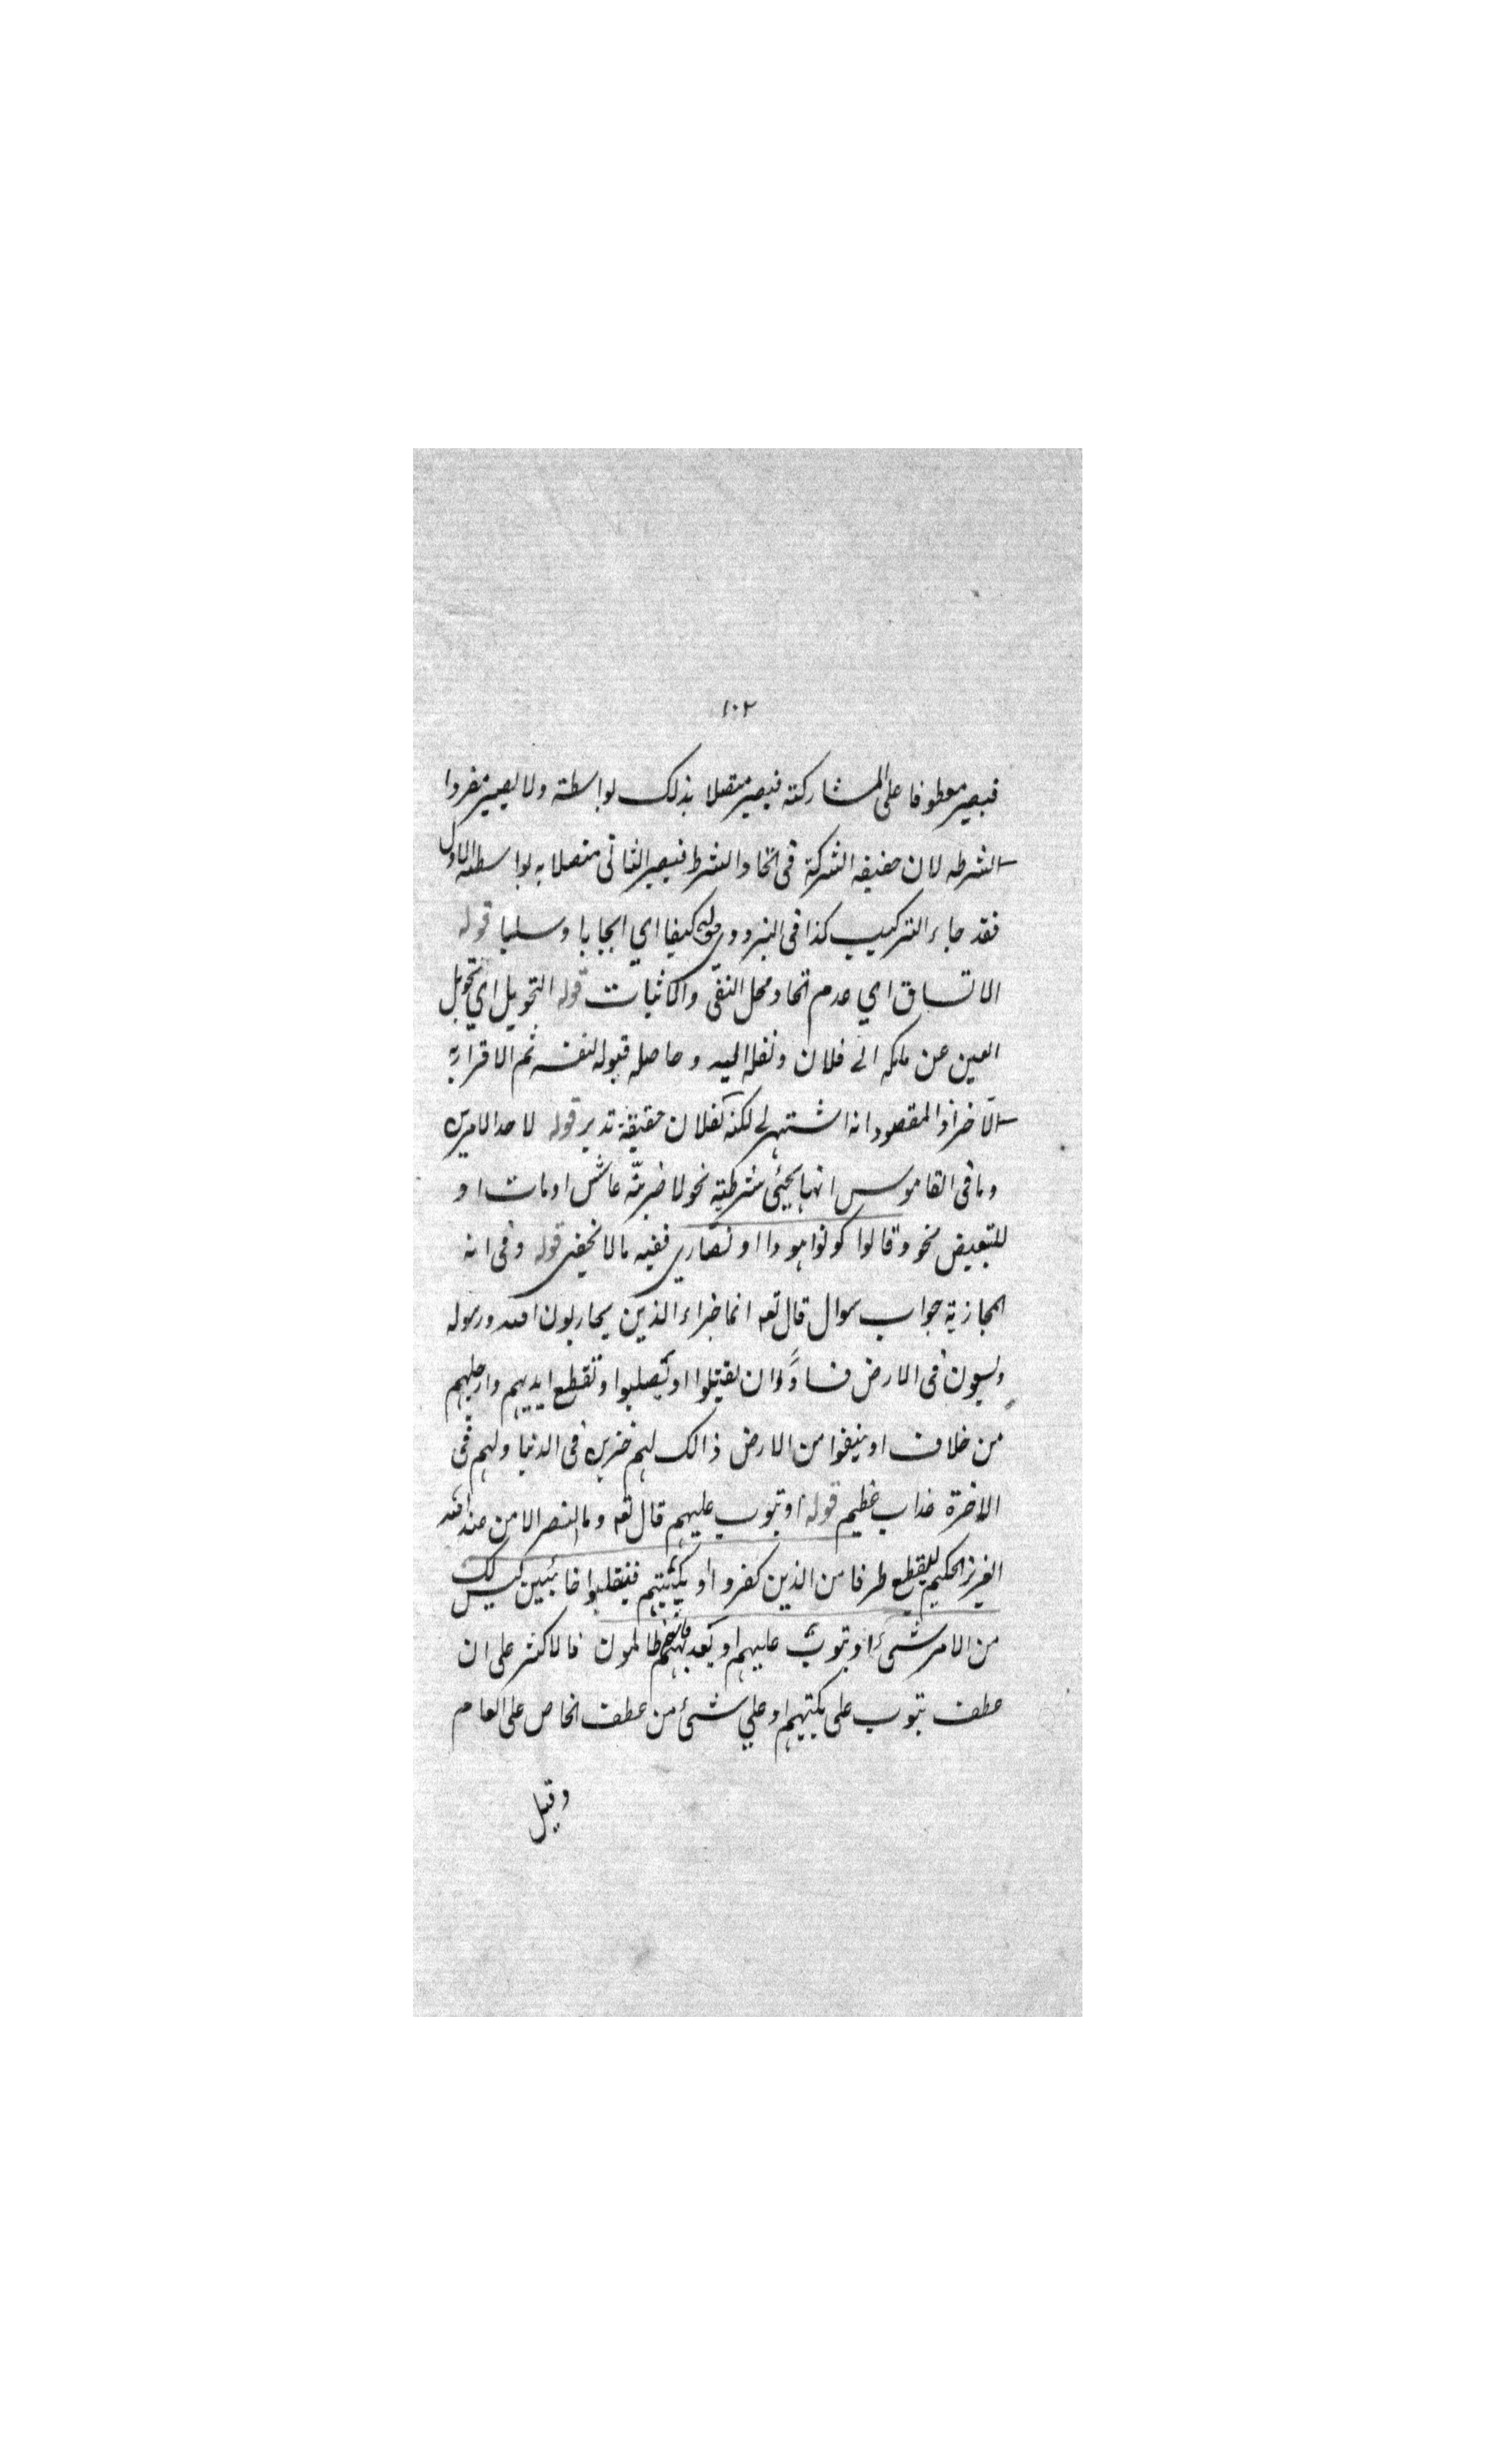 ١٠٢
فيصير معطوفا على المشاركته فيصير متصلا بذلك لواسطة ولا يصير مفردا
الشرطه لان حقيقه الشركة فى اتحاد الشرط فيصير الثانى متصلا به لواسطه الاول
فقد جاء التركيب كذا فى البزدوي قوله كيفا اي ايجابا وسلبا قوله
الاتساق اي عدم اتحاد محل النفى والاثبات قوله التحويل اي تحويل
العين عن ملكه الى فلان ونقله اليه وحاصله قبوله لنفسه ثم الاقرار به
لآخر اذ المقصود انه اشتهر لى لكنه لفلان حقيقة تدبر قوله لاحد الامرين
وما فى القاموس انها يجيئ شرطية نحو لاضربنّه عاش او مات او
للتبعيض نحو وقالوا كونوا هودا او نصاري ففيه ما لا يخفى قوله وفى انه
المجازية جواب سوال قال تعه انما جزاء الذين يحاربون الله ورسوله
ويسعون فى الارض فسادًا ان يقتلوا او يصلبوا او تقطع ايديهم وارجلهم
من خلاف او ينفوا من الارض ذالك لهم خزي فى الدنيا ولهم فى
الاخرة عذاب عظيم قوله او يتوب عليهم قال تعه وما النصر الا من عند الله
العزيز الحكيم ليقطع طرفا من الذين كفروا او يكبتهم فينقلبوا خائبين ليس لك
من الامر شئ او يتوب عليهم او يعذبهم فانهم ظالمون فالاكثر على ان
عطف يتوب على يكبتهم او علي شئ من عطف الخاص على العام
وقيل